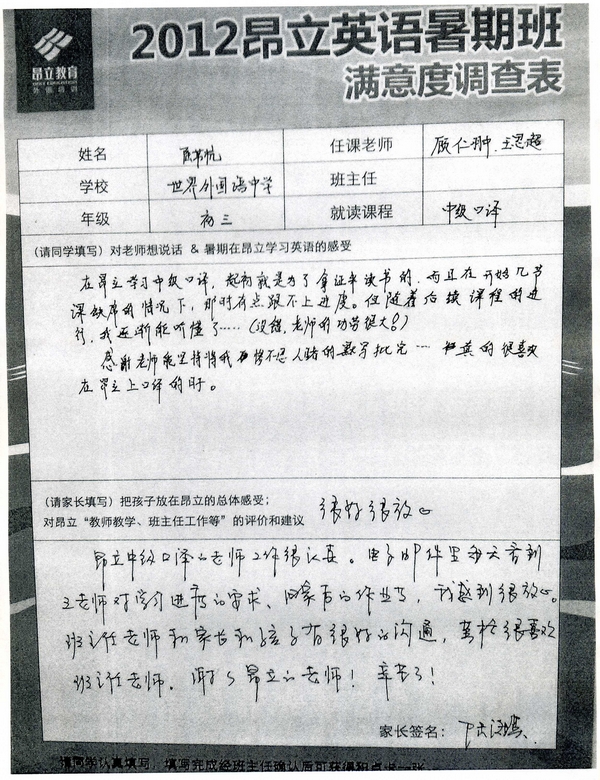 昂立教育
外语培训
2012昂立英语暑期班
满意度调查表
姓名 任课老师 顾仁翀、王思超
学校 世界外国语中学 班主任
年级 初三 就读课程 中级口译
(请同学填写)对老师想说话 & 暑期在昂立学习英语的感受
在昂立学习中级口译,起初就是为了拿证书读书的,而且在开始几节
课缺席的情况下,那时有点跟不上进度。但随着后续课程的进
行,我逐渐能听懂了……(没错,老师的功劳很大!)
感谢老师能坚持将我 惨不忍睹的默写批完… 真的很喜欢
在昂立上口译的时。
(请家长填写)把孩子放在昂立的总体感受;
对昂立“教师教学、班主任工作等”的评价和建议 很好很放心
昂立中级口译的老师工作很认真。电子邮件里每天看到
王老师对学习进度的要求、回家后的作业等,我感到很放心。
班主任老师和家长和孩子有很好的沟通, 很喜欢
班主任老师。谢谢昂立的老师!辛苦了!
家长签名:
请同学认真填写,填写完成经班主任确认后可获得积点卡一张